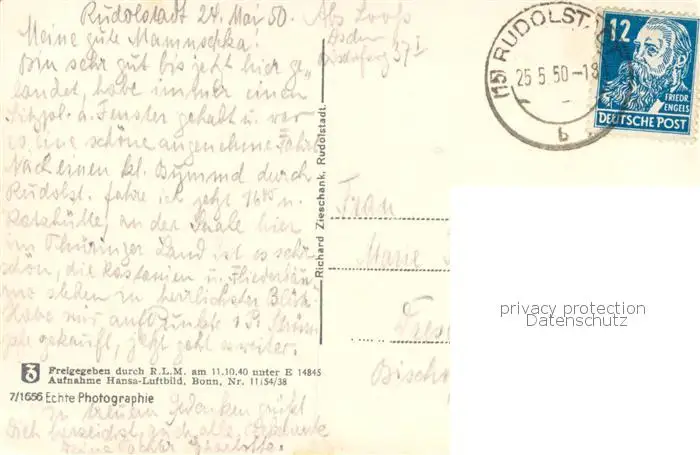 Rudolstadt 24. Mai 50. Abs Loofs
Meine gute Mamuschka!
Bin sehr gut bis jetzt hier ge-
landet, habe immer einen
Sitzpl. a. Fenster gehabt u. war
es eine schöne angenehme Fahrt
Nach einen kl. Bummel durch
Rudolst. fahre ich jetzt 16 45 n.
Katzhütte, an der Saale hier
im Thüringer Land ist es sehr
schön, die Kastanien u. Fliederbäu-
me stehen in herrlichster Blüte.
Habe mir auf Punkte 1 Pr. Strüm
pfe gekauft, jetzt geht es weiter.
In treuem Gedenken grüßt
Dich herzlichst, auch alle Bekannte
Deine Tochter
Bischofsweg 37 I
(15) RUDOLST
25.5.50-18
b
12
FRIEDR.
ENGELS
DEUTSCHE POST
Richard Zieschank, Rudolstadt.
Frau
Marie
Bischo
Freigegeben durch R.L.M. am 11.10.40 unter E 14845
Aufnahme Hansa-Luftbild, Bonn, Nr. 11154/38
7/1656 Echte Photographie
privacy protection
Datenschutz